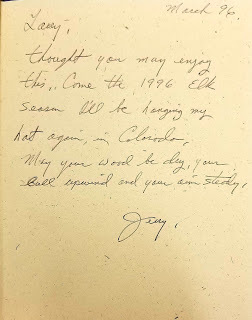 March 96.
Larry,
thought you may enjoy
this,. Come the 1996 Elk
season I'll be hanging my
hat again, in Colorado,
May your wood be dry, your
Bull upwind and your aim steady,
Jerry,